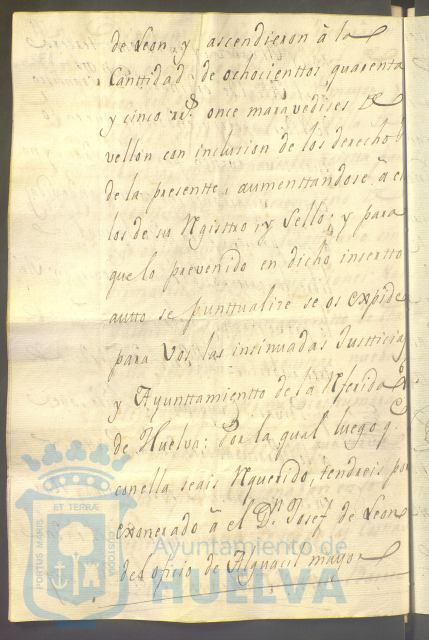 de Leon, y ascendieron à la
Canttidad de ochocienttos quarenta
y cinco rs. once maravedises de
vellon con inclusion de los derechos
de la presentte, aumenttandose à el
los de su Rgistro, y Sello; y para
que lo prevenido en dicho insertto
autto se punttualize se os expide
para Vos, las insinuadas Justticia,
y Ayunttamientto de la Rferida
de Huelva: Por la qual luego q.
con ella seais Rquerido, tendreis por
exonerado à el Dn. Josef de Leon
del oficio de Alguacil mayor
ET TERRÆ
PORTUS MARIS
CUSTODIA
Ayuntamiento de
HUELVA